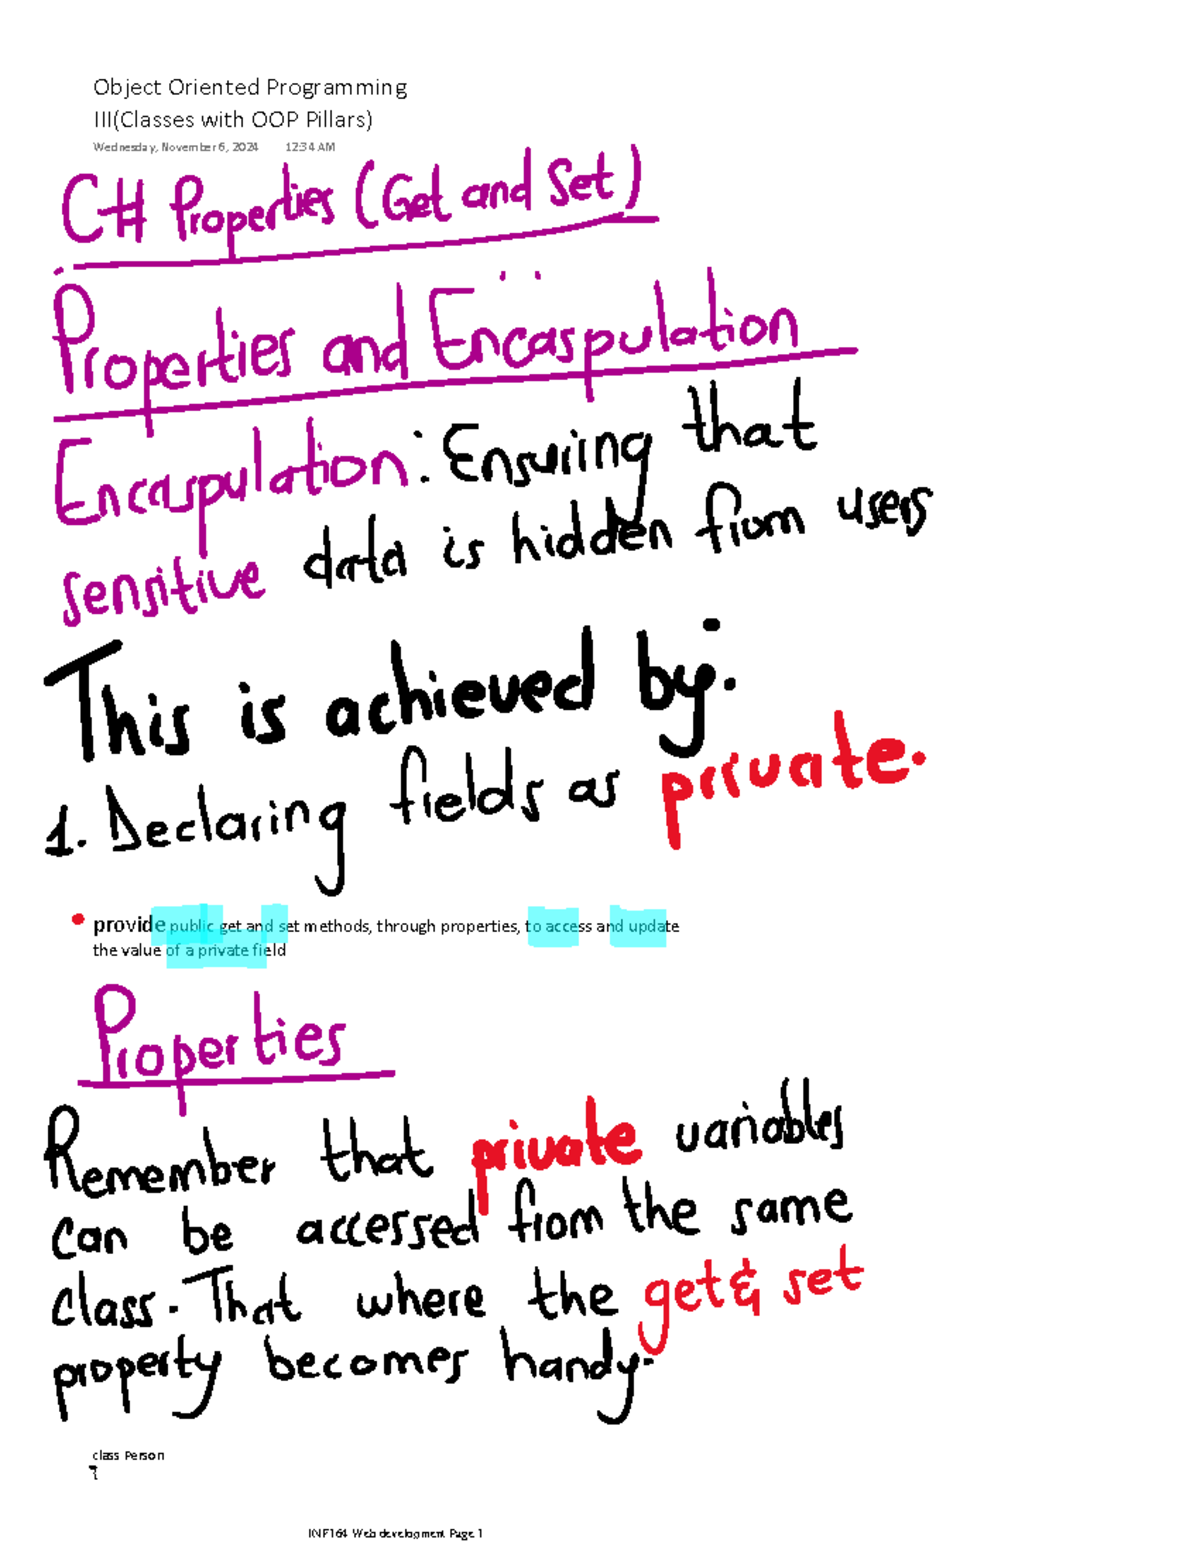 Object Oriented Programming
III(Classes with OOP Pillars)
Wednesday, November 6, 2024 12:34 AM
C# Properties (Get and Set)
Properties and Encaspulation
Encaspulation: Ensuring that
sensitive data is hidden from users
This is achieved by:
1. Declaring fields as private.
• provide public get and set methods, through properties, to access and update
the value of a private field
Properties
Remember that private variables
can be accessed from the same
class. That where the get & set
property becomes handy.
class Person
{
INF164 Web development Page 1